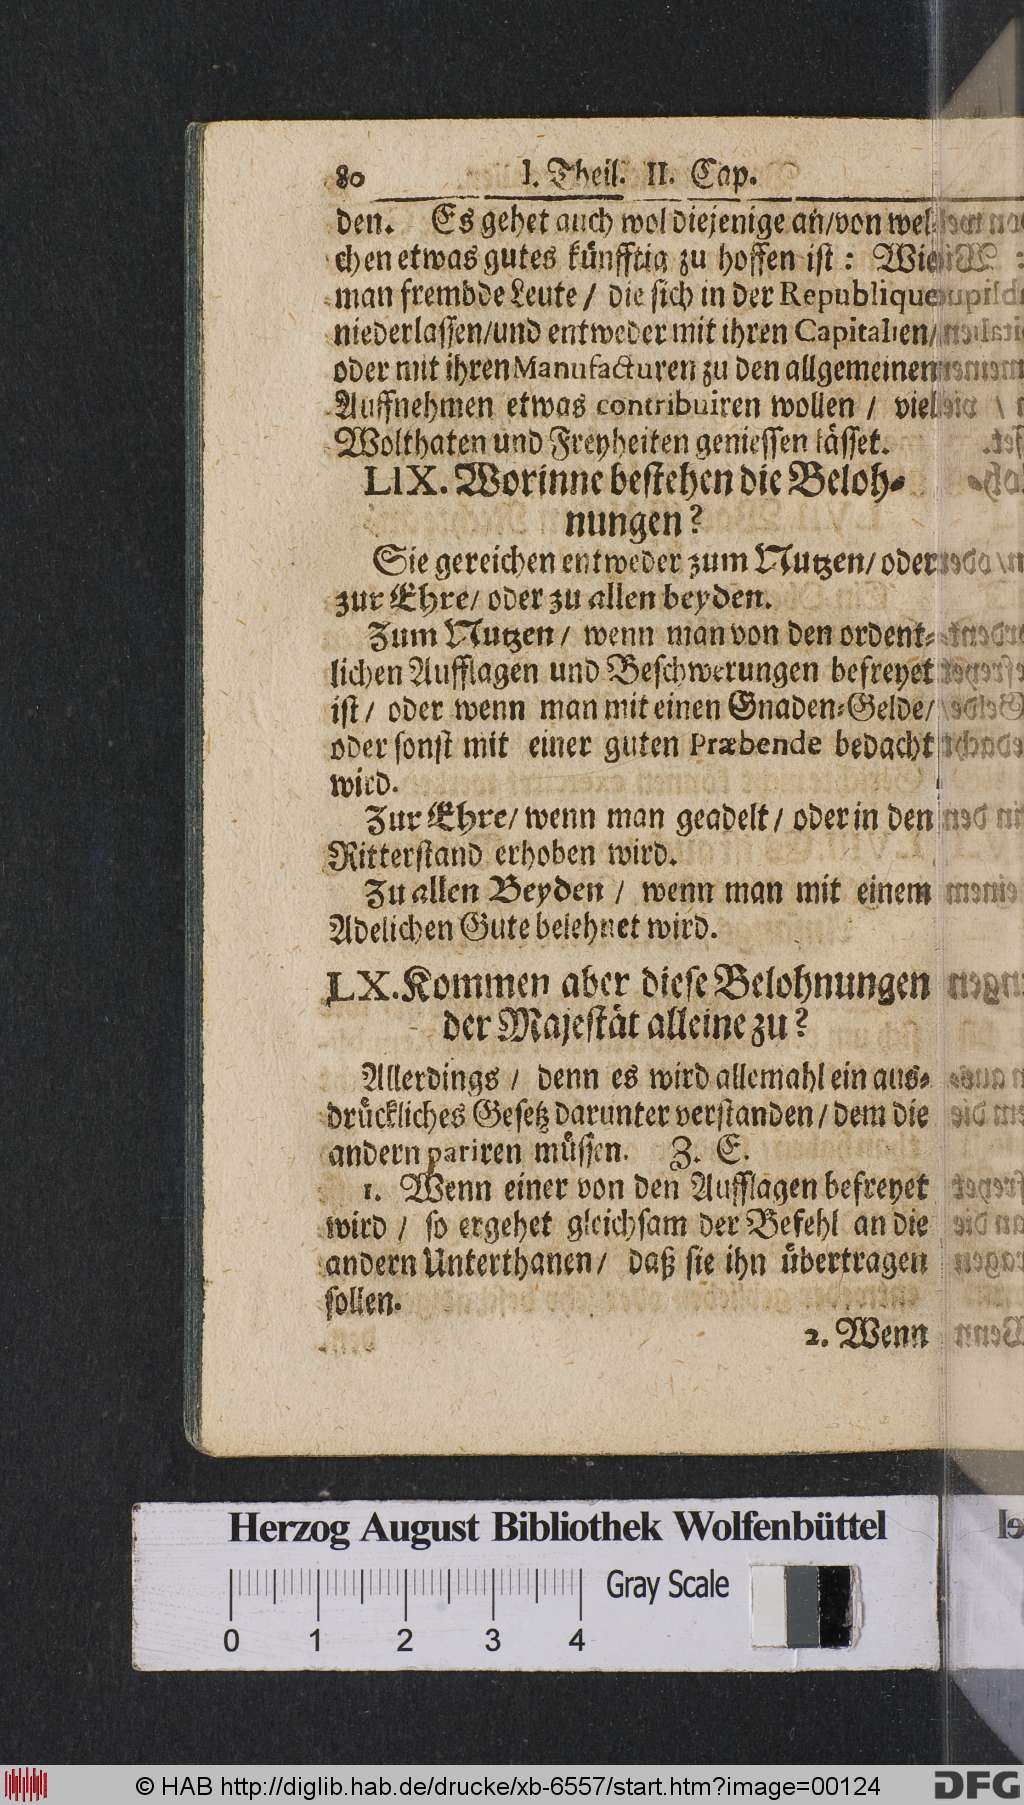 80 I. Theil. II. Cap.
den. Es gehet auch wol diejenige an/von wel-
chen etwas gutes künfftig zu hoffen ist: Wie
man frembde Leute / die sich in der Republique
niederlassen/und entweder mit ihren Capitalien/
oder mit ihren Manufacturen zu den allgemeinen
Auffnehmen etwas contribuiren wollen / viel
Wolthaten und Freyheiten geniessen lässet.
LIX. Worinne bestehen die Beloh-
nungen?
Sie gereichen entweder zum Nutzen/ oder
zur Ehre/ oder zu allen beyden.
Zum Nutzen / wenn man von den ordent-
lichen Aufflagen und Beschwerungen befreyet
ist / oder wenn man mit einen Gnaden-Gelde/
oder sonst mit einer guten Præbende bedacht
wird.
Zur Ehre/ wenn man geadelt / oder in den
Ritterstand erhoben wird.
Zu allen Beyden / wenn man mit einem
Adelichen Gute belehnet wird.
LX. Kommen aber diese Belohnungen
der Majestät alleine zu?
Allerdings / denn es wird allemahl ein aus-
drückliches Gesetz darunter verstanden / dem die
andern pariren müssen. Z. E.
1. Wenn einer von den Aufflagen befreyet
wird / so ergehet gleichsam der Befehl an die
andern Unterthanen / daß sie ihn übertragen
sollen.
2. Wenn
Herzog August Bibliothek Wolfenbüttel
Gray Scale
0 1 2 3 4
© HAB http://diglib.hab.de/drucke/xb-6557/start.htm?image=00124
DFG